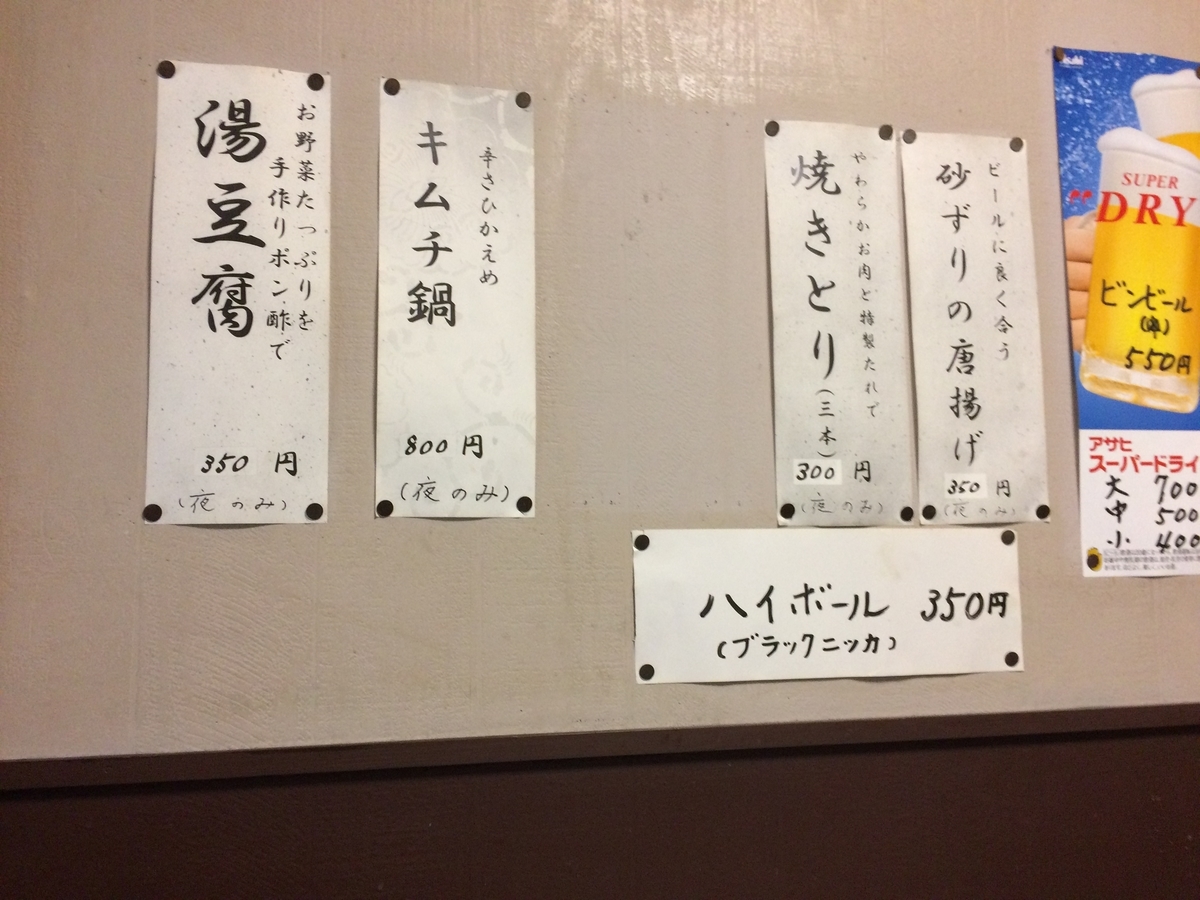 お野菜たっぷりを
手作りポン酢で
湯豆腐
350 円
(夜のみ)
辛さひかえめ
キムチ鍋
800 円
(夜のみ)
やわらかお肉と特製たれで
焼きとり(三本)
300 円
(夜のみ)
ビールに良く合う
砂ずりの唐揚げ
350 円
(夜のみ)
ハイボール 350円
(ブラックニッカ)
Asahi
SUPER
"DRY
ビンビール
(中)
550円
アサヒ
スーパードライ
大 700
中 500
小 400